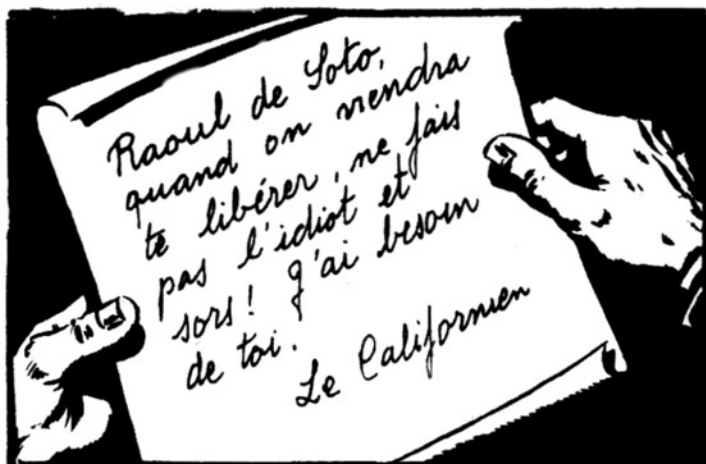 Raoul de Soto,
quand on viendra
te libérer, ne fais
pas l'idiot et
sors! J'ai besoin
de toi.
Le Californien